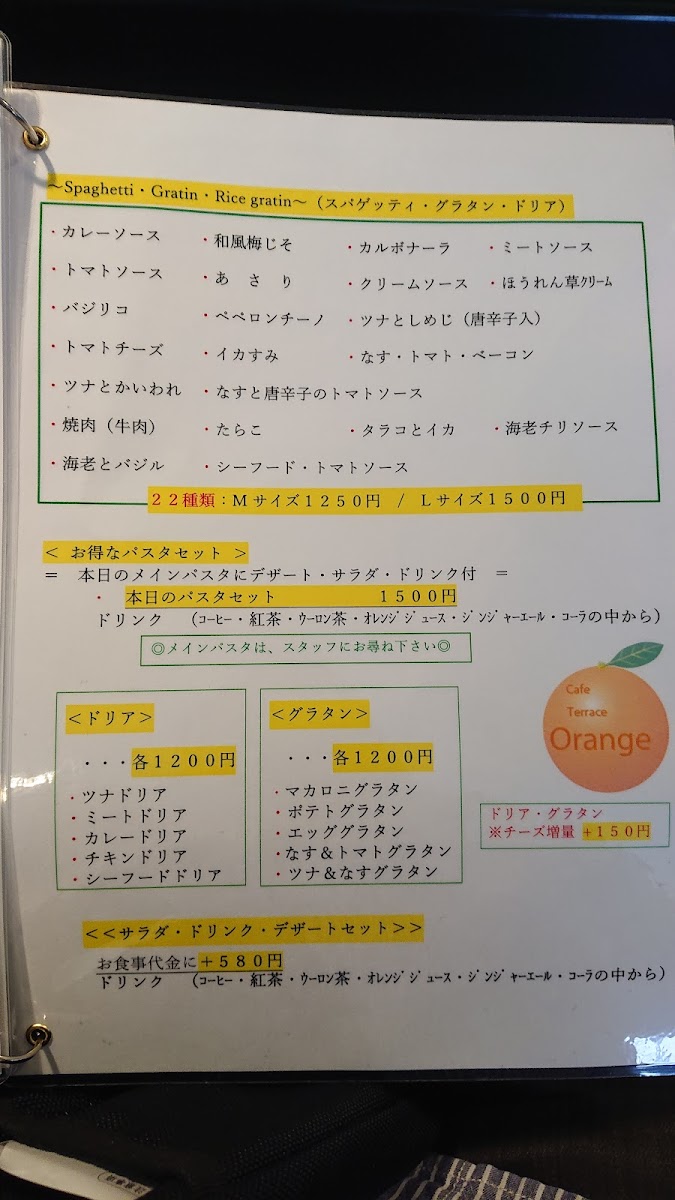 ～Spaghetti・Gratin・Rice gratin～（スパゲッティ・グラタン・ドリア）
・カレーソース ・和風梅じそ ・カルボナーラ ・ミートソース
・トマトソース ・あ さ り ・クリームソース ・ほうれん草ｸﾘｰﾑ
・バジリコ ・ペペロンチーノ ・ツナとしめじ（唐辛子入）
・トマトチーズ ・イカすみ ・なす・トマト・ベーコン
・ツナとかいわれ ・なすと唐辛子のトマトソース
・焼肉（牛肉） ・たらこ ・タラコとイカ ・海老チリソース
・海老とバジル ・シーフード・トマトソース
２２種類：Ｍサイズ１２５０円 / Ｌサイズ１５００円
＜ お得なパスタセット ＞
＝ 本日のメインパスタにデザート・サラダ・ドリンク付 ＝
・ 本日のパスタセット １５００円
ドリンク （ｺｰﾋｰ・紅茶・ｳｰﾛﾝ茶・ｵﾚﾝｼﾞｼﾞｭｰｽ・ｼﾞﾝｼﾞｬｰｴｰﾙ・ｺｰﾗの中から）
◎メインパスタは、スタッフにお尋ね下さい◎
＜ドリア＞
・・・各１２００円
・ツナドリア
・ミートドリア
・カレードリア
・チキンドリア
・シーフードドリア
＜グラタン＞
・・・各１２００円
・マカロニグラタン
・ポテトグラタン
・エッググラタン
・なす＆トマトグラタン
・ツナ＆なすグラタン
Cafe
Terrace
Orange
ドリア・グラタン
※チーズ増量 +１５０円
＜＜サラダ・ドリンク・デザートセット＞＞
お食事代金に＋５８０円
ドリンク （ｺｰﾋｰ・紅茶・ｳｰﾛﾝ茶・ｵﾚﾝｼﾞｼﾞｭｰｽ・ｼﾞﾝｼﾞｬｰｴｰﾙ・ｺｰﾗの中から）